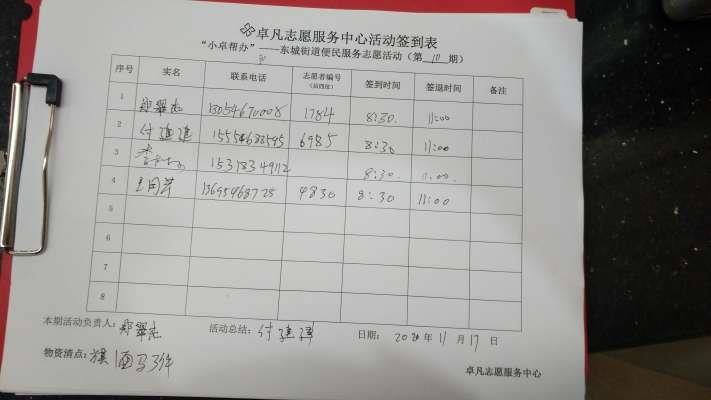 卓凡志愿服务中心活动签到表
“小卓帮办”——东城街道便民服务志愿活动(第 10 期)
序号 实名 联系电话 志愿者编号(后四位) 签到时间 签退时间 备注
1 郑翠志 13054670008 1784 8:30. 11:00
2 付建建 6985 8:30 11:00
3 15318349112 8:30. 11:00.
4 13695468725 4830 8:30 11:00
5
6
7
8
本期活动负责人: 郑翠志 活动总结: 付建建 日期: 2020 年 11 月 17 日
物资清点: 旗1面马3件
卓凡志愿服务中心